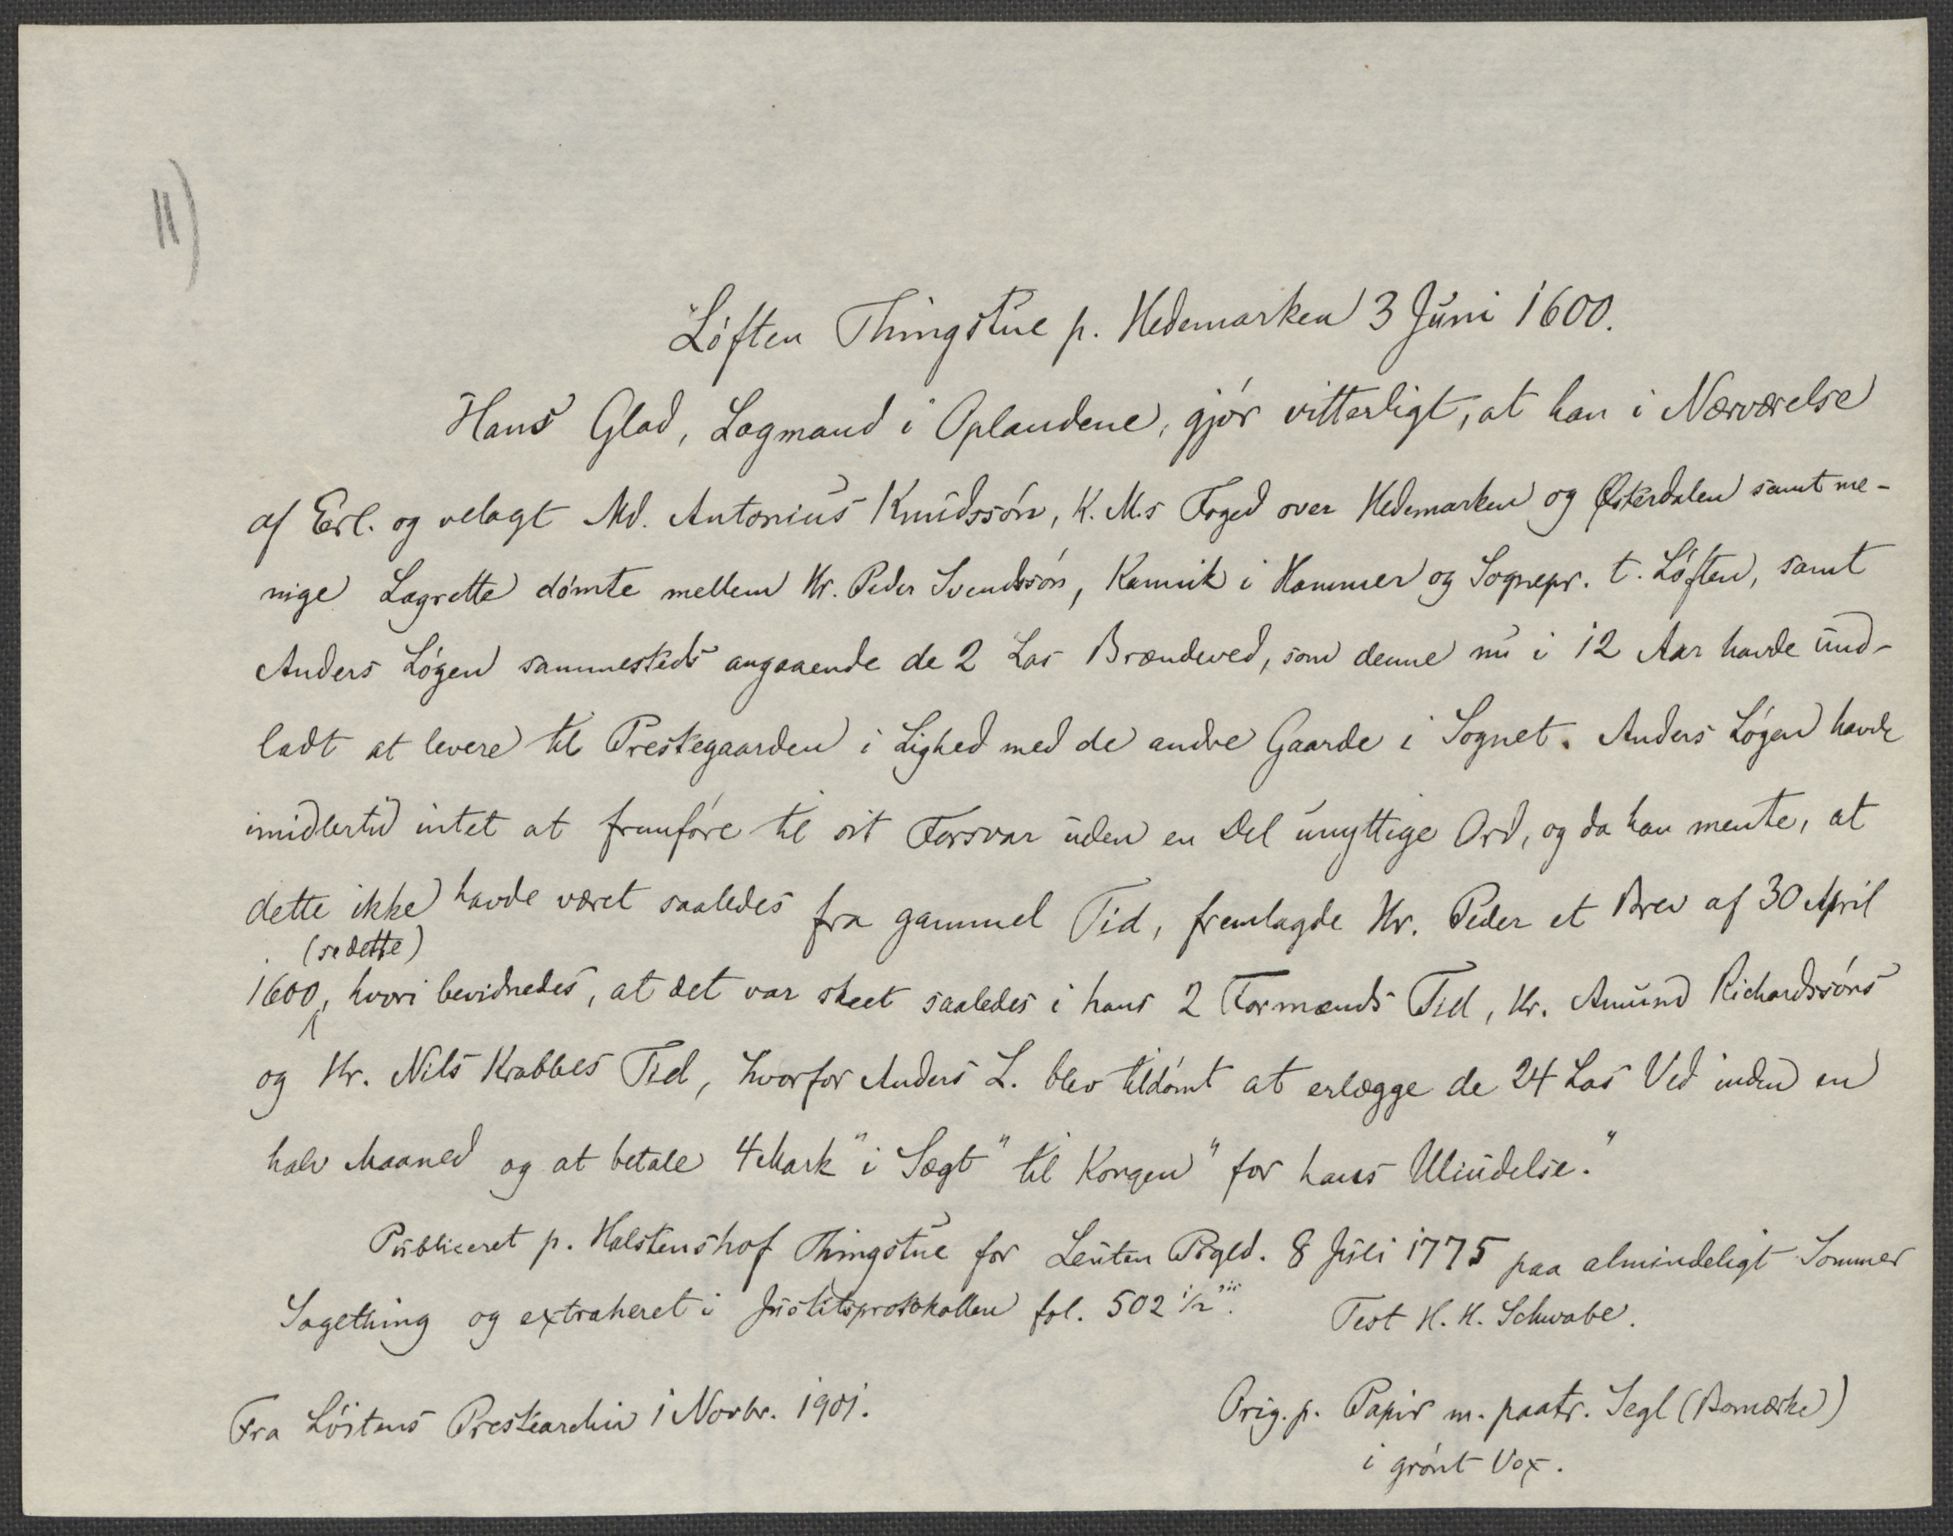 11)
Løften Thingstue p. Hedemarken 3 Juni 1600.
Hans Glad, Lagmand i Oplandene, gjør vitterligt, at han i Nærværelse
af Erl. og velagt Md. Antonius Knudssøn, K. M.s Foged over Hedemarken og Østerdalen samt me-
nige Lagrette dømte mellem Hr. Peder Svendssøn, Kannik i Hammer og Sognepr. t. Løften, samt
Anders Løgen sammesteds angaaende de 2 Las Brændeved, som denne nu i 12 Aar havde und-
ladt at levere til Prestegaarden i Lighed med de andre Gaarde i Sognet. Anders Løgen havde
imidlertid intet at fremføre til sit Forsvar uden en Del unyttige Ord, og da han mente, at
dette ikke havde været saaledes fra gammel Tid, fremlagde Hr. Peder et Brev af 30 April
(se dette)
1600, hvori bevidnedes, at det var skeet saaledes i hans 2 Formænds Tid, Hr. Amund Richardssøns
og Hr. Nils Krabbes Tid, hvorfor Anders L. blev tildømt at erlægge de 24 Las Ved inden en
halv Maaned og at betale 4 Mark "i Sægt" til Kongen "for hans Ulindelse."
Publiceret p. Halstenshof Thingstue for Leuten Prgld. 8 Juli 1775 paa almindeligt Sommer
Sagething og extraheret i Justitsprotokollen fol. 502 1/2".
Test H. H. Schwabe.
Fra Løitens Prestearchiv i Novbr. 1901.
Orig. p. Papir m. paatr. Segl (Bomærke)
i grønt Vox.